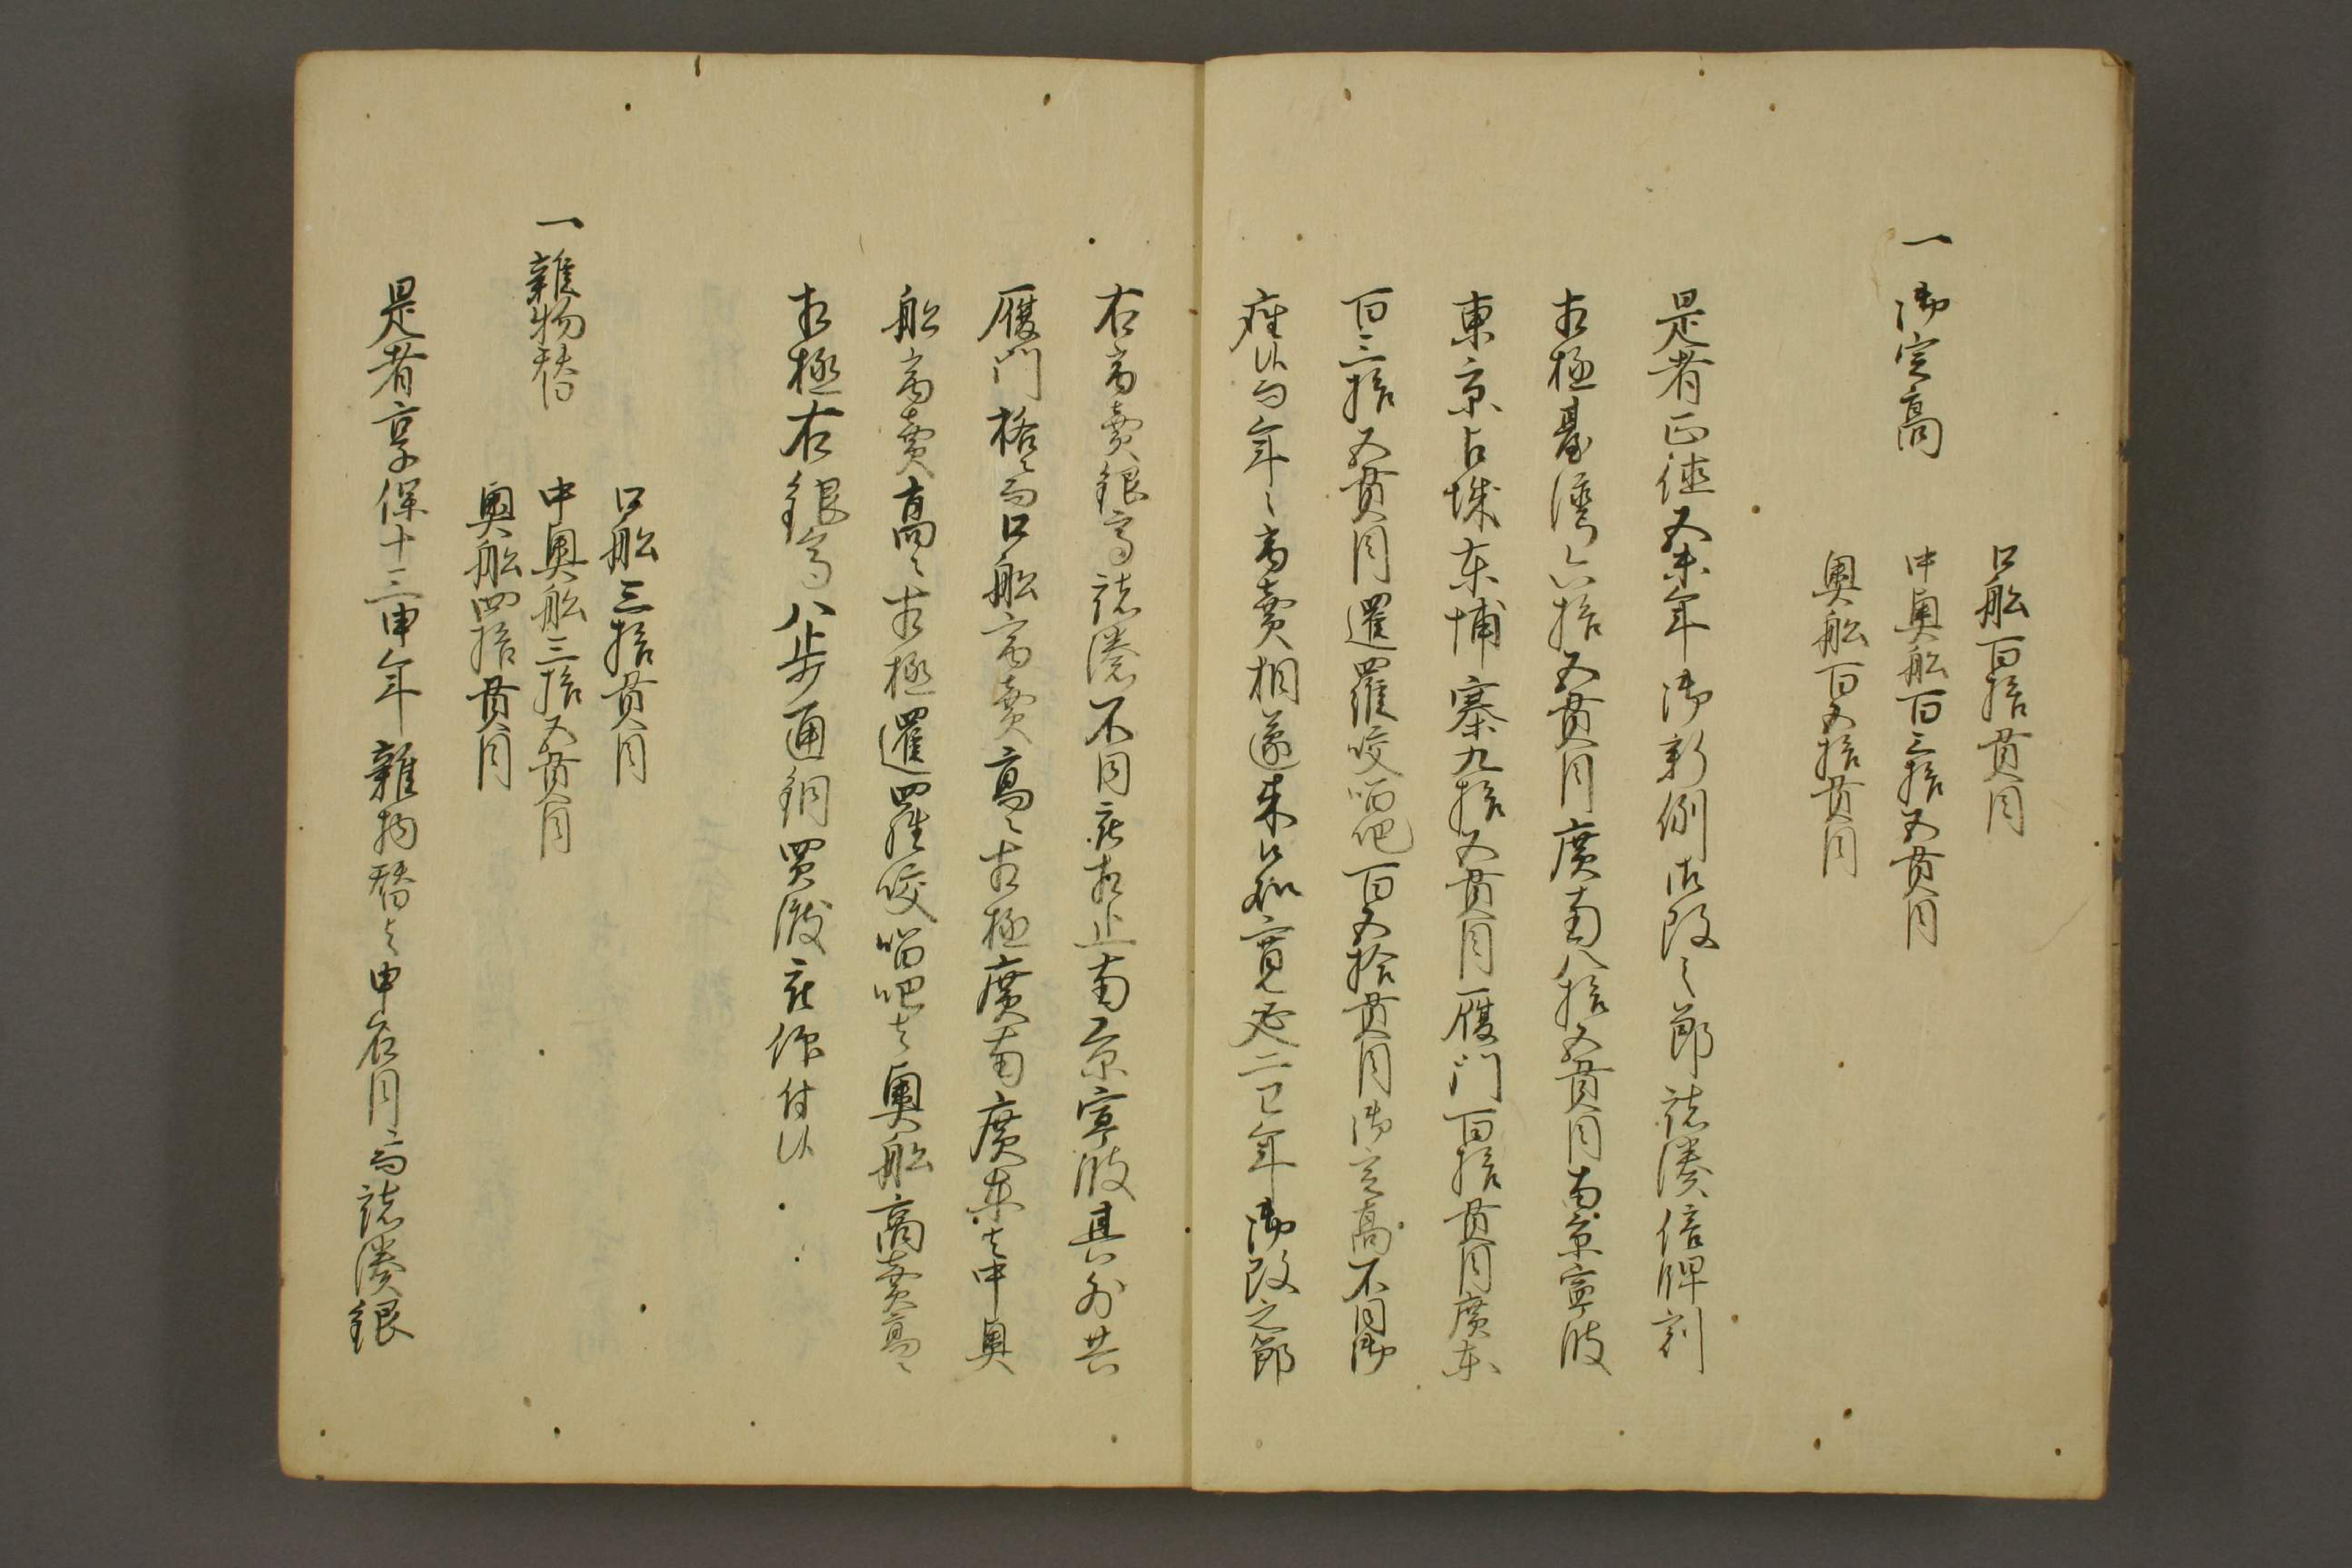 口船百拾貫目
一御定高　中奥船百三拾五貫目
奥船百五拾貫目
是者正徳五未年御新例御改之節諸湊信牌割
相極臺湾六拾五貫目廣南八拾五貫目南京寧波
東京占城東埔寨九拾五貫目厦門百拾貫目廣東
百三拾五貫目暹羅咬��吧百五拾貫目御定高不同御
座候而年々商賣相遂来候処寛延二巳年御改之節
右商賣銀高諸湊不同被相止南京寧波其外共
厦門格ニ而口船商賣高ニ相極廣南廣東者中奥
船商賣高ニ相極暹羅咬��吧者奥船商賣高ニ
相極右銀高八歩通銅買渡被仰付候
口船三拾貫目
一雑物替　中奥船三拾五貫目
奥船四拾貫目
是者享保十三申年雑物替与申名目ニ而諸湊銀